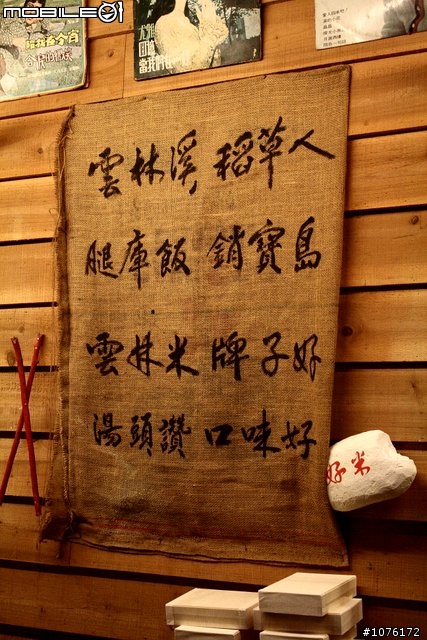 MOBILE01
雲林溪 稻草人
腿庫飯 銷寶島
雲林米 牌子好
湯頭讚 口味好
好米
#1076172